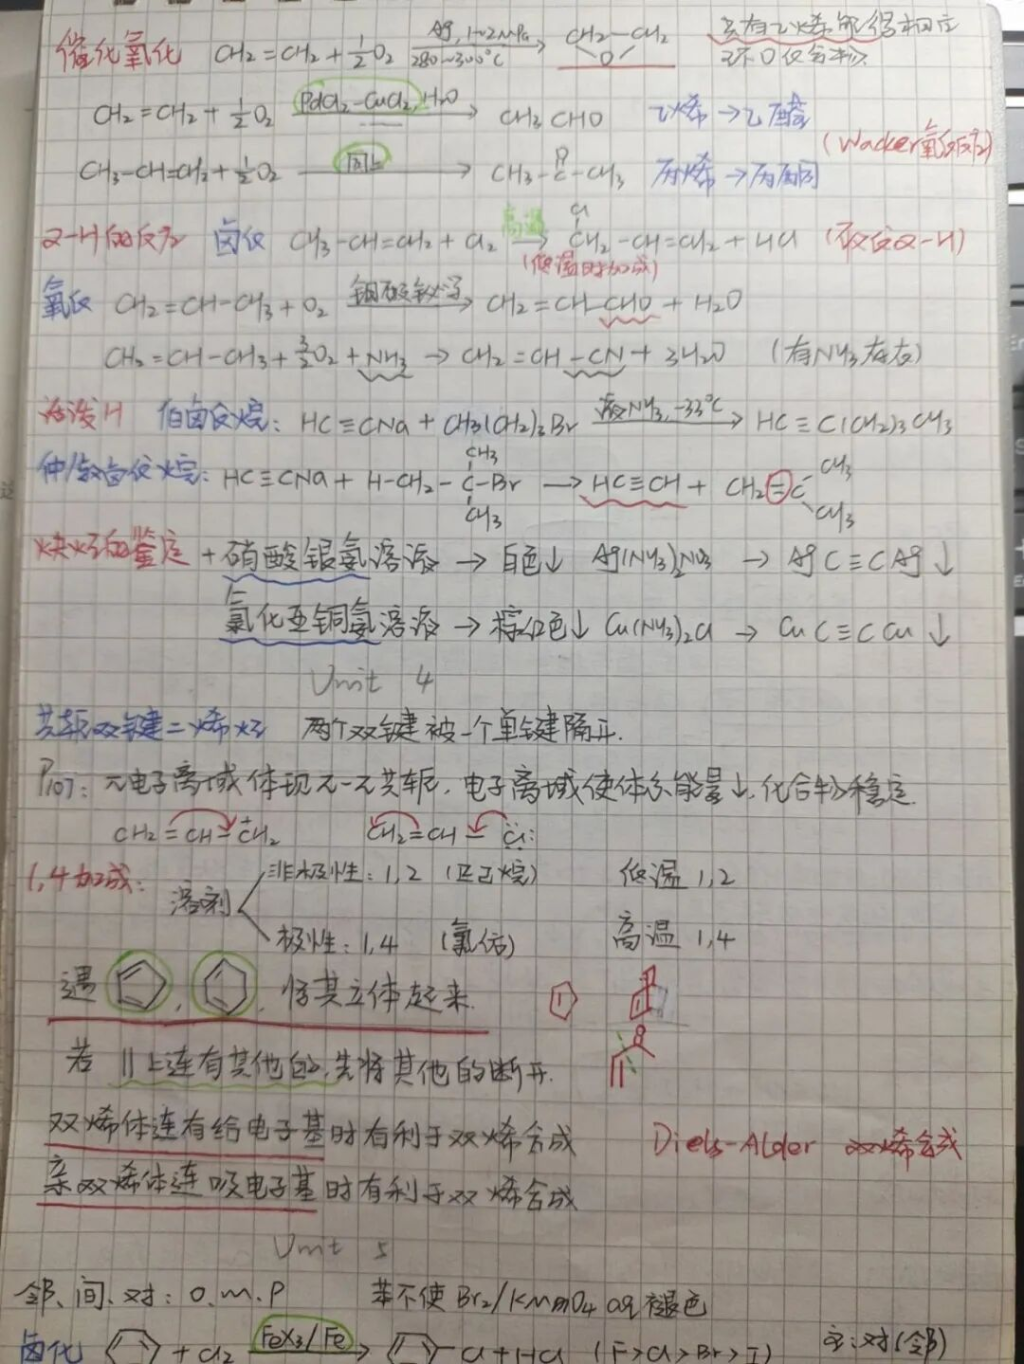 催化氧化 CH2=CH2 + 1/2 O2 —Ag, 1~2MPa / 280~300℃→ CH2-CH2 O 只有乙烯能得相应
环O化合物
CH2=CH2 + 1/2 O2 —PdCl2-CuCl2, H2O→ CH3CHO 乙烯→乙醛
(Wacker氧化反应)
CH3-CH=CH2 + 1/2 O2 —同上→ CH3-C(=O)-CH3 丙烯→丙酮
α-H的反应 卤代 CH3-CH=CH2 + Cl2 —高温→ (低温时加成) CH2(Cl)-CH=CH2 + HCl (取代α-H)
氧化 CH2=CH-CH3 + O2 —钼酸铋等→ CH2=CH-CHO + H2O
CH2=CH-CH3 + 3/2 O2 + NH3 → CH2=CH-CN + 3H2O (有NH3存在)
活泼H 伯卤代烷: HC≡CNa + CH3(CH2)3Br —液NH3, -33℃→ HC≡C(CH2)3CH3
仲/叔卤代烷: HC≡CNa + H-CH2-C(CH3)(CH3)-Br → HC≡CH + CH2=C(CH3)CH3
炔烃的鉴定 + 硝酸银氨溶液 → 白色↓ Ag(NH3)2NO3 → AgC≡CAg↓
氯化亚铜氨溶液 → 棕红色↓ Cu(NH3)2Cl → CuC≡CCu↓
Unit 4
共轭双键二烯烃 两个双键被一个单键隔开.
Pro7: π电子离域体现π-π共轭, 电子离域使体系能量↓, 化合物稳定.
CH2=CH-C+H2 CH2=CH-Cl:
1,4加成: 溶剂 非极性: 1,2 (正己烷) 低温 1,2
极性: 1,4 (氯仿) 高温 1,4
遇 , , 将其立体起来.
若 || 上连有其他的, 先将其他的断开.
双烯体连有给电子基时有利于双烯合成 Diels-Alder 双烯合成
亲双烯体连吸电子基时有利于双烯合成
Unit 5
邻、间、对: O. m. P 苯不使Br2/KMnO4 aq褪色
卤化 + Cl2 —FeX3/Fe→ -Cl + HCl (F>Cl>Br>I) 主: 对(邻)